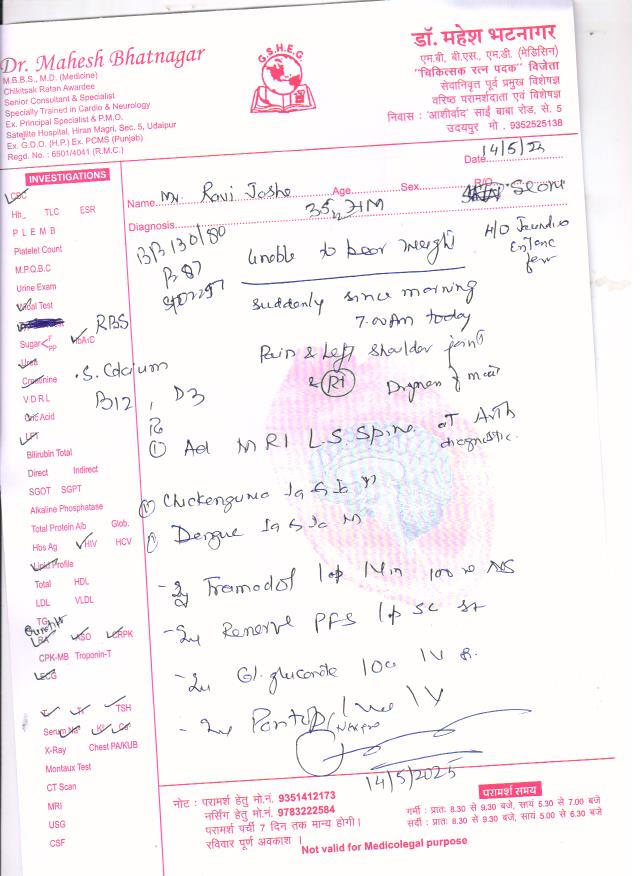 Dr. Mahesh Bhatnagar
M.B.B.S., M.D. (Medicine)
Chikitsak Ratan Awardee
Senior Consultant & Specialist
Specially Trained in Cardio & Neurology
Ex. Principal Specialist & P.M.O.
Satellite Hospital, Hiran Magri, Sec. 5, Udaipur
Ex. G.D.O. (H.P.) Ex. PCMS (Punjab)
Regd. No. : 6501/4041 (R.M.C.)
G.S.H.E.G
डॉ. महेश भटनागर
एम.बी. बी.एस., एम.डी. (मेडिसिन)
"चिकित्सक रत्न पदक" विजेता
सेवानिवृत पूर्व प्रमुख विशेषज्ञ
वरिष्ठ परामर्शदाता एवं विशेषज्ञ
निवास : 'आशीर्वाद' साई बाबा रोड, से. 5
उदयपुर मो. 9352525138
Date 14/5/25
Name Mr. Ravi Joshe Age Sex R/O
Diagnosis
INVESTIGATIONS
CBC
Hb_ TLC ESR
P L E M B
Platelet Count
M.P.Q.B.C
Urine Exam
Vidal Test
RBS
Sugar F PP HbA1C
Urea
Creatinine
V D R L
Uric Acid
LFT
Bilirubin Total
Direct Indirect
SGOT SGPT
Alkaline Phosphatase
Total Protein A/b Glob.
Hbs Ag HIV HCV
Lipid Profile
Total HDL
LDL VLDL
TG
RA ASO CRPK
CPK-MB Troponin-T
ECG
TSH
Serum Na+ K+ Ca+
X-Ray Chest PA/KUB
Montaux Test
CT Scan
MRI
USG
CSF
BP 130/80
P 87
SPO2 97
unable to bear weight
suddenly since morning
7.00AM today
Pain & Left shoulder joint
& Rt
S. Calcium
B12, D3
① Ad MRI L.S. Spine at Arth diagnostic.
Chickenguna IgG IgM
Dengue IgG IgM
- Inj Tramadol 1 in 100 NS
- Inj PFS SC
- Inj Cl. gluconate 100 IV
- Inj IV
14/5/2025
नोट : परामर्श हेतु मो.नं. 9351412173
नर्सिंग हेतु मो.नं. 9783222584
परामर्श पर्ची 7 दिन तक मान्य होगी।
रविवार पूर्ण अवकाश ।
Not valid for Medicolegal purpose
परामर्श समय
गर्मी : प्रातः 8.30 से 9.30 बजे, सायं 5.30 से 7.00 बजे
सर्दी : प्रातः 8.30 से 9.30 बजे, सायं 5.00 से 6.30 बजे